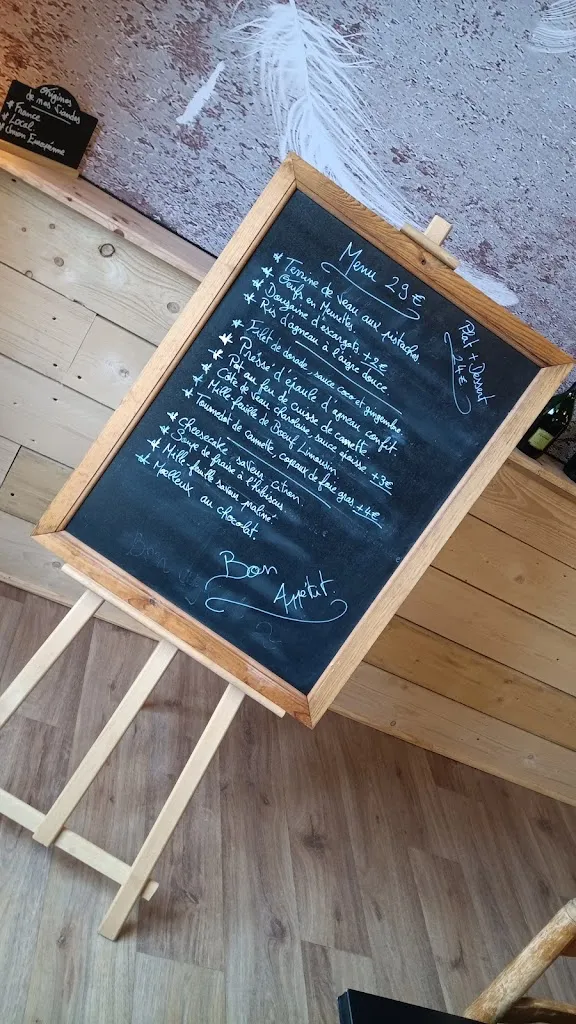 Origines
de nos viandes
* France
* Local
* Union Européenne
Menu 29€
* Terrine de Veau aux pistaches.
* Oeufs en Meurettes.
* Douzaine d'escargots +2€
* Ris d'agneau à l'aigre douce.
* Filet de dorade sauce coco et gingembre
* Pressé d'épaule d'agneau confit
* Pot au feu de cuisse de canette
* Côte de Veau charolaise sauce +3€
* Mille-feuille de Boeuf Limousin
* Tournedos de Cannette, copeaux de foie gras +4€
* Cheesecake saveur citron.
* Soupe de fraise à l'hibiscus
* Mille feuille saveur praliné.
* Moelleux au chocolat.
Plat + Dessert
24€
Bon
Appétit.